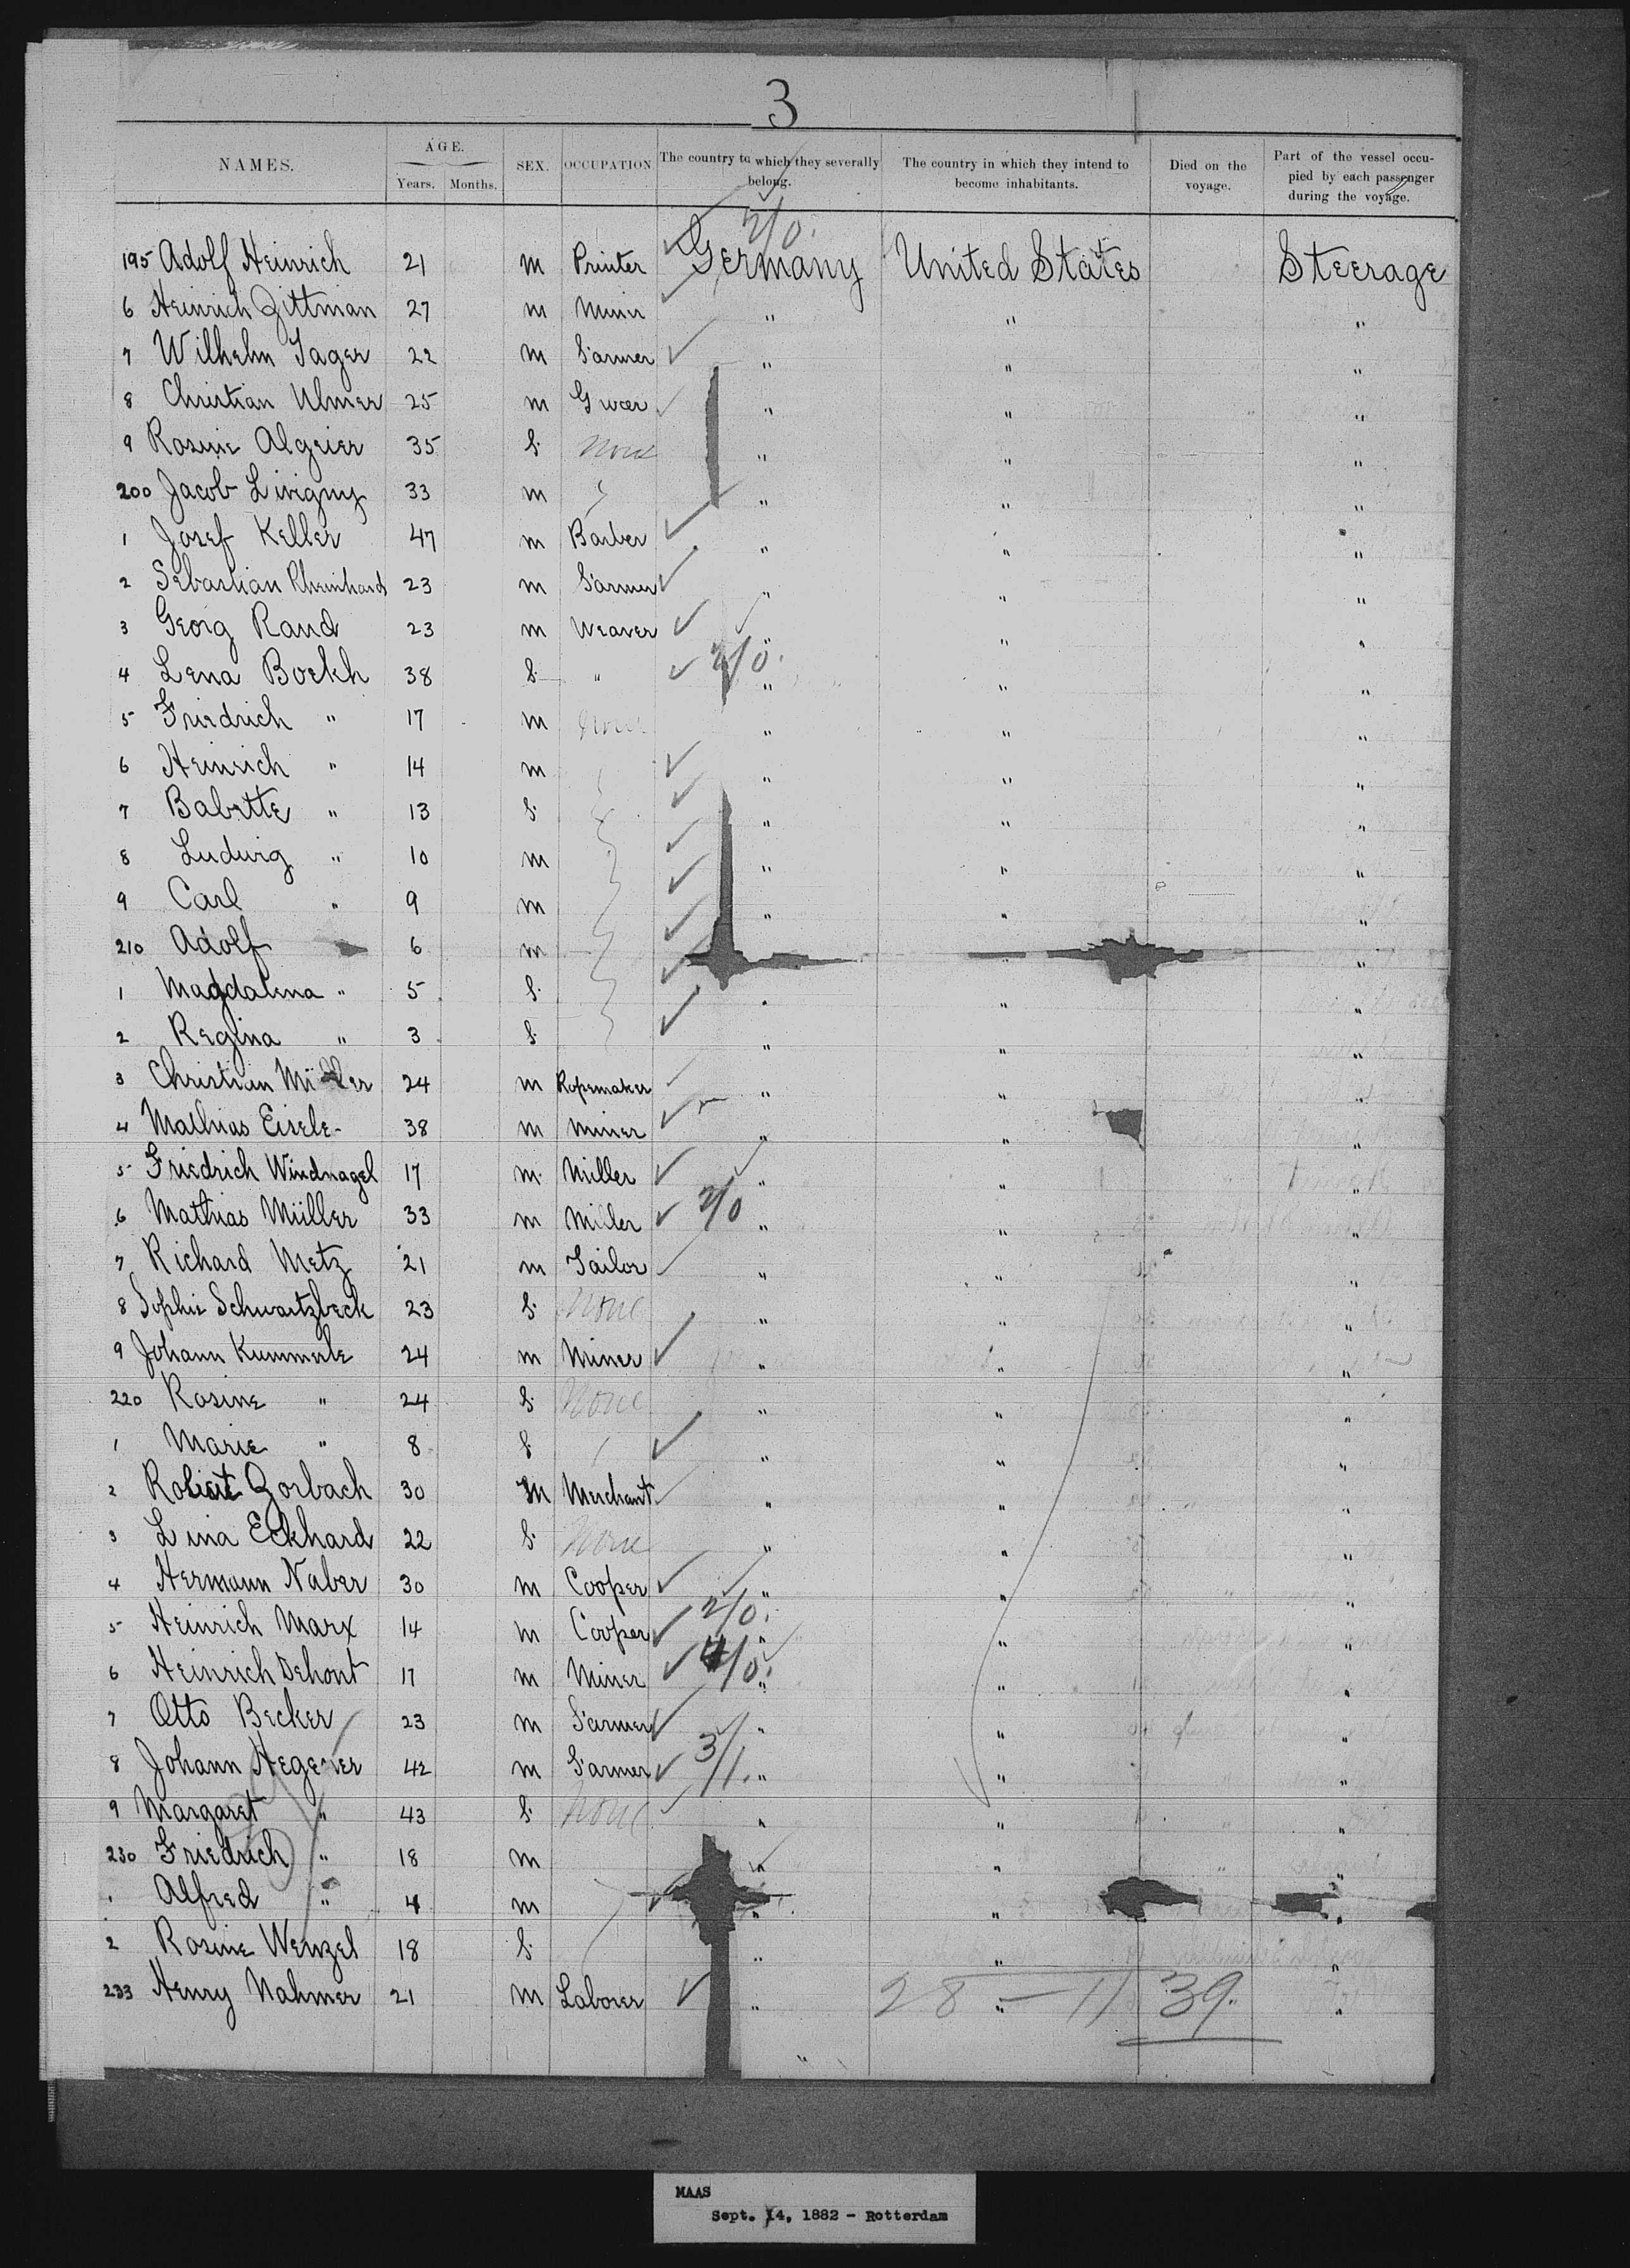 3
NAMES. AGE. Years. Months. SEX. OCCUPATION The country to which they severally belong. The country in which they intend to become inhabitants. Died on the voyage. Part of the vessel occupied by each passenger during the voyage.
2/0.
195 Adolf Heinrich 21 m Printer Germany United States Steerage
6 Heinrich Zittman 27 m Miner " " "
7 Wilhelm Jager 22 m Farmer " " "
8 Christian Ulmer 25 m Grocer " " "
9 Rosine Algeier 35 f. None " " "
200 Jacob 33 m " " "
1 Josef Keller 47 m Barber " " "
2 Sebastian Rheinhard 23 m Farmer " " "
3 Georg Rand 23 m Weaver " " "
4 Lena Boekh 38 f. " 2/0. " " "
5 Friedrich " 17 m None " " "
6 Heinrich " 14 m " " "
7 Babette " 13 f. " " "
8 Ludwig " 10 m " " "
9 Carl " 9 m " " "
210 Adolf 6 m " "
1 Magdalena " 5 f. " " "
2 Regina " 3 f. " " "
3 Christian Miller 24 m Ropemaker " " "
4 Mathias Eisele 38 m Miner " " "
5 Friedrich Windnagel 17 m. Miller " " "
6 Mathias Müller 33 m Miller 2/0 " " "
7 Richard Metz 21 m Tailor " " "
8 Sophie Schwartzbeck 23 f. None " " "
9 Johann Kummerle 24 m Miner " " "
220 Rosine " 24 f. None " " "
1 Marie " 8 f. " " "
2 Robert Zorbach 30 M Merchant " " "
3 Lina Eckhard 22 f. None " " "
4 Hermann Naber 30 m Cooper " " "
5 Heinrich Marx 14 m Cooper 2/0. " " "
6 Heinrich Dehont 17 m Miner 4/0. " " "
7 Otto Becker 23 m Farmer " " "
8 Johann Hegener 42 m Farmer 3/1. " " "
9 Margaret " 43 f. None " " "
230 Friedrich " 18 m " " "
1 Alfred " 4 m " " "
2 Rosine Wenzel 18 f. " " "
233 Henry Nahmer 21 m Laborer " " "
28 – 11 39.
MAAS
Sept. 14, 1882 - Rotterdam